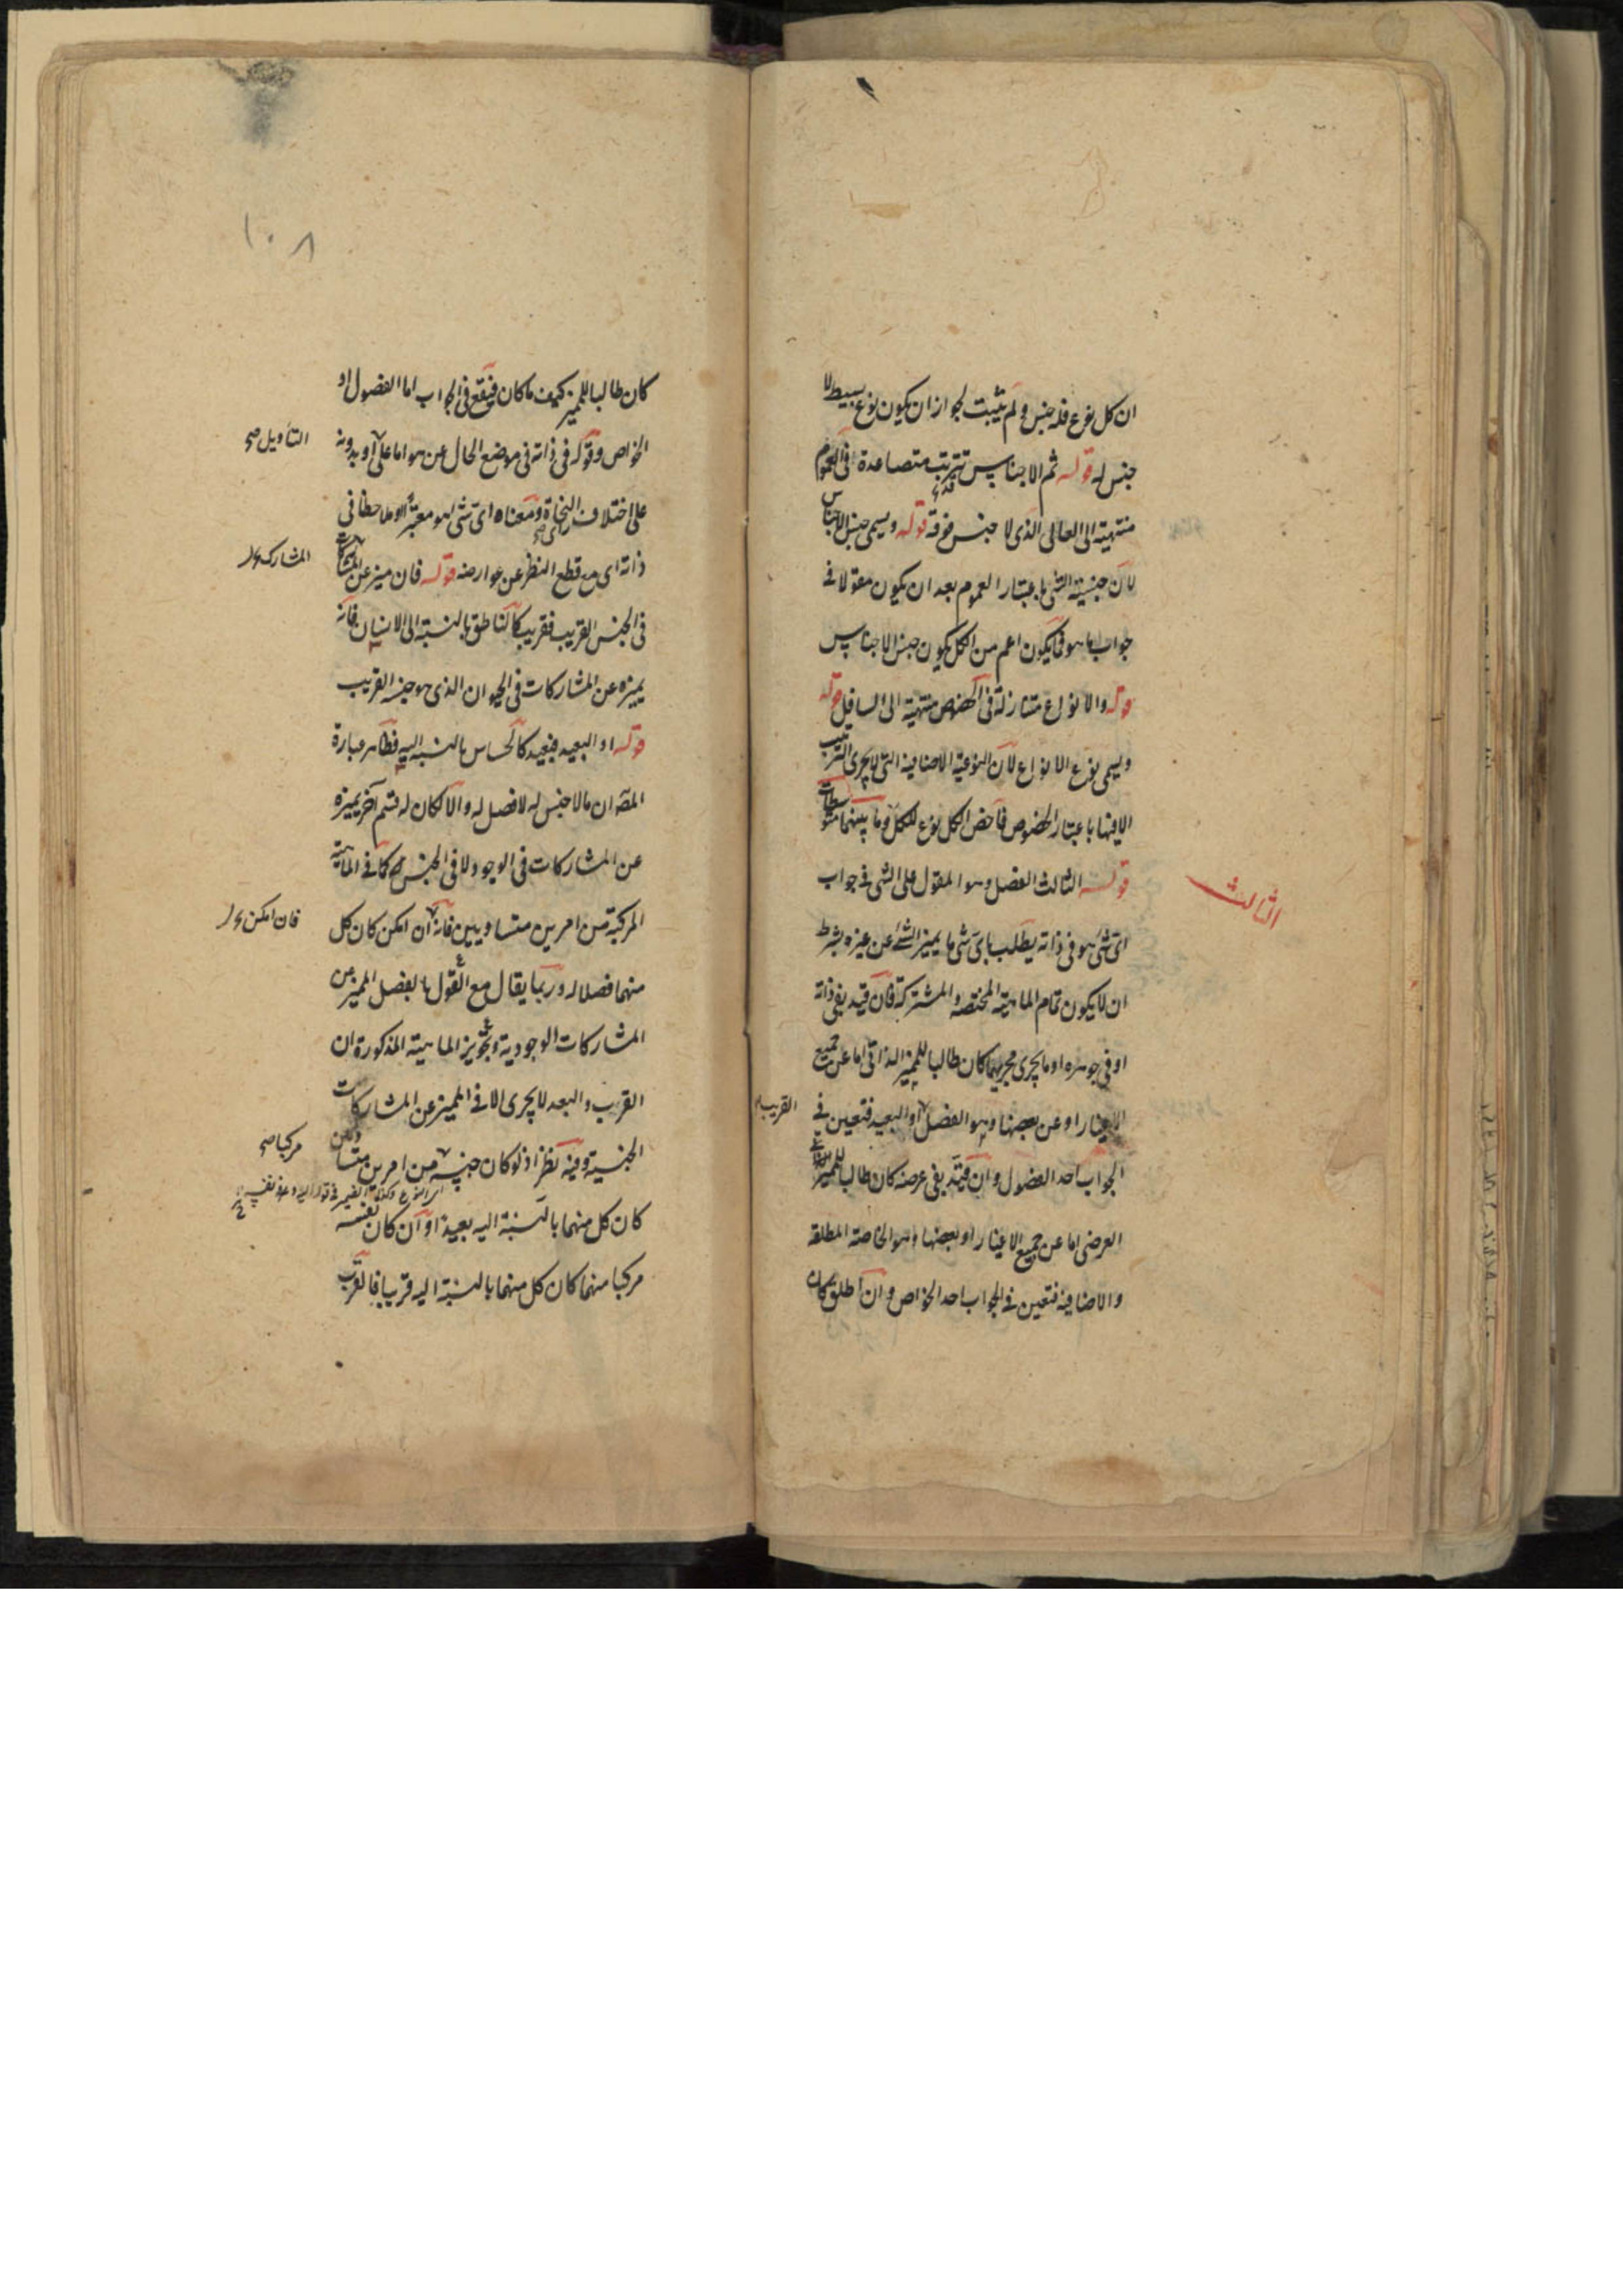 ان كل نوع فله جنس ولم يثبت لجواز ان يكون نوع بسيط لا
جنس له قوله ثم الاجناس قد تترتب متصاعدة فى العموم
منتهية الى العالى الذى لا جنس فوقه قوله ويسمى جنس الاجناس
لان جنسية الشئ باعتبار العموم بعد ان يكون مقولا فى
جواب ما هو فما يكون اعم من الكل يكون جنس الاجناس
قوله والانواع متنازلة فى الخصوص منتهية الى السافل قوله
ويسمى نوع الانواع لان النوعية الاضافية التى لا يجرى الترتيب
الا فيها باعتبار الخصوص فاخص الكل نوع للكل وما بينهما متوسطات
قوله الثالث الفصل وهو المقول على الشئ فى جواب
الثالث
اى شئ هو فى ذاته يطلب باى شئ ما يميز الشئ عن غيره بشرط
ان لا يكون تمام الماهية المختصة والمشتركة فان قيد بفى ذاته
او فى جوهره او ما يجرى مجريهما كان طالبا للمميز الذاتى اما عن جميع
الاغيار او عن بعضها وهو الفصل او البعيد فتعين فى
القريب
الجواب احد الفصول وان قيد بفى عرضه كان طالبا للمميز
العرضى اما عن جميع الاغيار او بعضها وهو الخاصة المطلقة
والاضافية فتعين فى الجواب احد الخواص وان اطلق كان
١٠٨
كان طالبا للمميز كيف ما كان فيقع فى الجواب اما الفصول او
الخواص وقوله فى ذاته فى موضع الحال عن هو اما على او بدونه
التأويل صح
على اختلاف النحاة ومعناه اى شئ هو معتبرا وملاحظا فى
ذاته اى مع قطع النظر عن عوارضه قوله فان ميز عن المشاركات
المشارك
فى الجنس القريب فقريب كالناطق بالنسبة الى الانسان فانه
يميزه عن المشاركات فى الحيوان الذى هو جنسه القريب
قوله او البعيد فبعيد كالحساس بالنسبة اليه فظاهر عبارة
المصـ ان ما لا جنس له لا فصل له والا لكان له قسم آخر يميزه
عن المشاركات فى الوجود لا فى الجنس كما فى الماهية
المركبة من امرين متساويين فانه ان امكن كان كل
فان امكن
منهما فصلا له وربما يقال مع القول بالفصل المميز عن
المشاركات الوجودية وتجويز الماهية المذكورة ان
القرب والبعد لا يجرى الا فى المميز عن المشاركات
الجنسية وفيه نظر اذ لو كان جنسه من امرين متساويين
مركبا صح
كان كل منهما بالنسبة اليه بعيدا او ان كان نفسه
مركبا منهما كان كل منهما بالنسبة اليه قريبا فالقرب